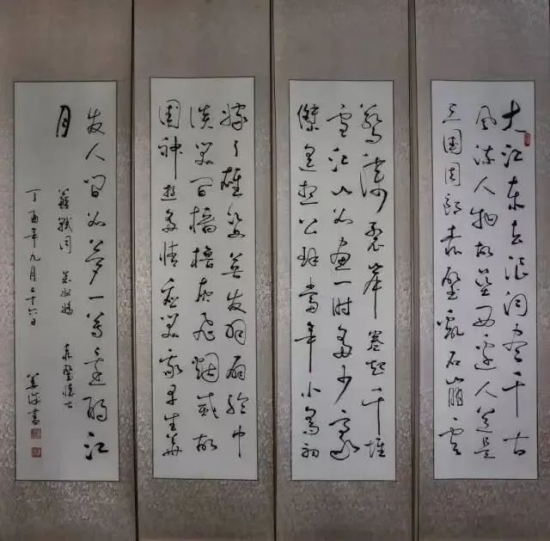 大江东去浪淘尽千古
风流人物故垒西边人道是
三国周郎赤壁乱石崩云
惊涛裂岸卷起千堆
雪江山如画一时多少豪
傑遥想公瑾当年小乔初
嫁了雄姿英发羽扇纶巾
谈笑间樯橹灰飞烟灭故
国神游多情应笑我早生华
发人间如梦一尊还酹江
月
苏轼词 念奴娇 赤壁怀古
丁酉年九月二十六日
书